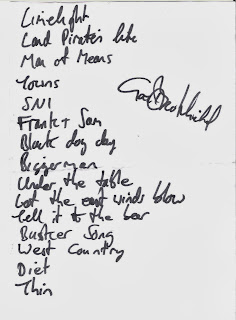 Limelight
Land Pirates life
Man of Means
Towns
SNI
Frank + Sam
Black dog day
Bigger man
Under the table
Let the east winds blow
Tell it to the bear
Busker Song
West Country
Diet
Thin